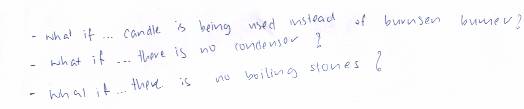 - what if ... candle is being used instead of burnsen burner?
- what if ... there is no condensor ?
- what if ... there is no boiling stones ?